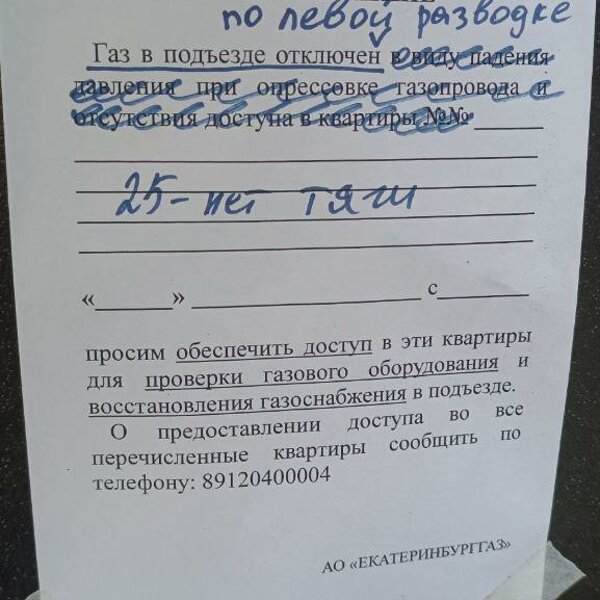 по левой разводке
Газ в подъезде отключен в виду падения
давления при опрессовке газопровода и
отсутствия доступа в квартиры №№
25 - нет тяги
«______» ____________________ с________
просим обеспечить доступ в эти квартиры
для проверки газового оборудования и
восстановления газоснабжения в подъезде.
О предоставлении доступа во все
перечисленные квартиры сообщить по
телефону: 89120400004
АО «ЕКАТЕРИНБУРГГАЗ»